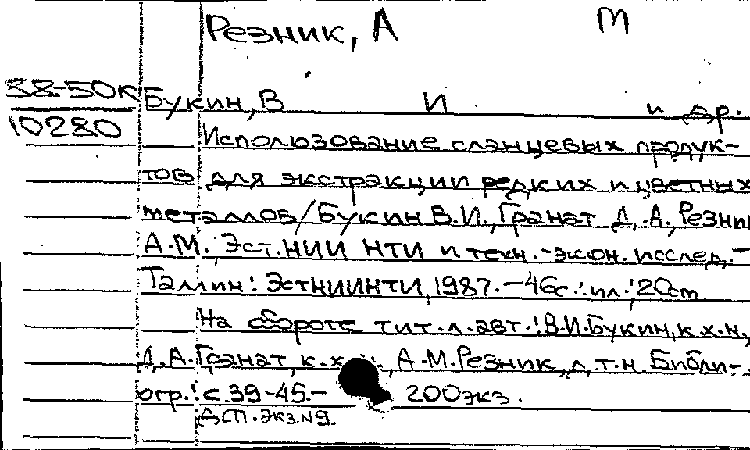 Резник, А М
38-50К
Букин, В И и др.
10280
Использование сланцевых продук-
тов для экстракции редких и цветных
металлов/Букин В.И., Гранат Д.А., Резни
А.М. Эст.НИИ НТИ и техн.-экон. исслед.-
Таллин: ЭстНИИНТИ, 1987.-46с.:ил.;20см
На обороте тит.л.авт.:В.И.Букин,к.х.н,
Д.А.Гранат, к.х. , А.М.Резник, д.т.н. Библи-
огр.: с.39-45.- 200экз.
Деп. экз.№9.